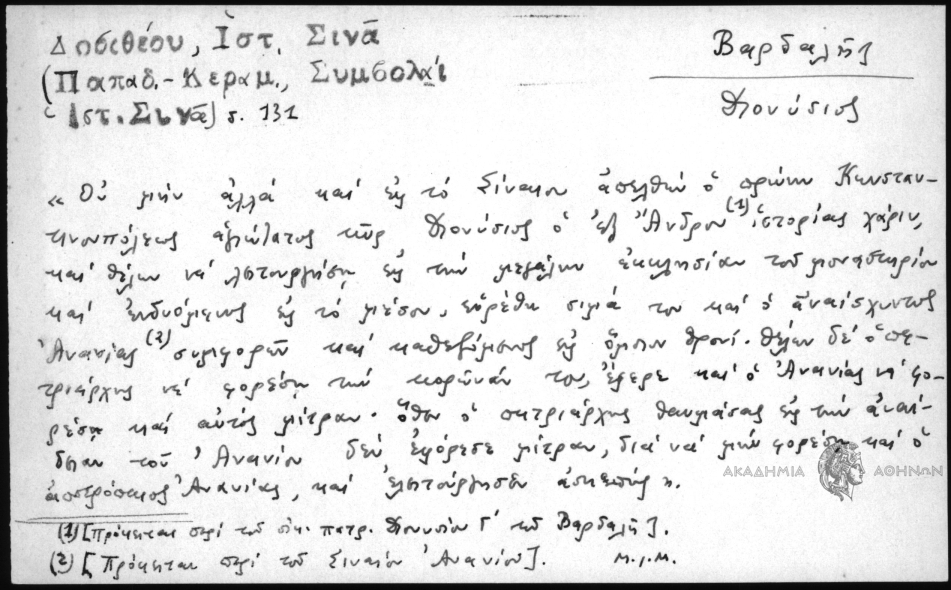 Δοσιθέου, Ἱστ. Σινᾶ
(Παπαδ.-Κεραμ., Συμβολαὶ
Ἱστ. Σινᾶ) σ. 131
Βαρδαλῆς
Διονύσιος
« Οὐ μὴν ἀλλὰ καὶ εἰς τὸ Σίναιον ἀπελθὼν ὁ πρώην Κωνσταν-
τινουπόλεως ἁγιώτατος κῦρ Διονύσιος ὁ ἐξ Ἄνδρου (1) ἱστορίας χάριν,
καὶ θέλων νὰ λειτουργήσῃ εἰς τὴν μεγάλην ἐκκλησίαν τοῦ μοναστηρίου
καὶ ἐνδυόμενος εἰς τὸ μέσον, εὑρέθη σιμά του καὶ ὁ ἀναίσχυντος
Ἀνανίας (2) συμφορῶν καὶ καθεζόμενος εἰς ὅμοιον θρονί. θέλων δὲ ὁ πα-
τριάρχης νὰ φορέσῃ τὴν κορῶνάν του, ἔφερε καὶ ὁ Ἀνανίας νὰ φο-
ρέσῃ καὶ αὐτὸς μίτραν. ὅθεν ὁ πατριάρχης θαυμάσας εἰς τὴν ἀναί-
δειαν τοῦ Ἀνανίου δὲν ἐφόρεσε μίτραν, διὰ νὰ μὴν φορέσῃ καὶ ὁ
Ἀνανίας, καὶ ἐλειτούργησεν ἀσκεπής ».
(1) [Πρόκειται περὶ τοῦ οἰκ. πατρ. Διονυσίου Γ΄ τοῦ Βαρδαλῆ].
(2) [Πρόκειται περὶ τοῦ Σιναίου Ἀνανίου]. Μ.Ι.Μ.
ΑΚΑΔΗΜΙΑ ΑΘΗΝΩΝ